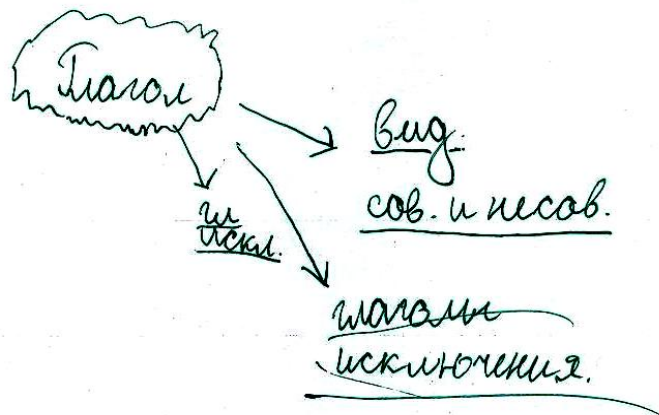 Глагол
вид.
сов. и несов.
гл
искл.
глаголы
исключения.